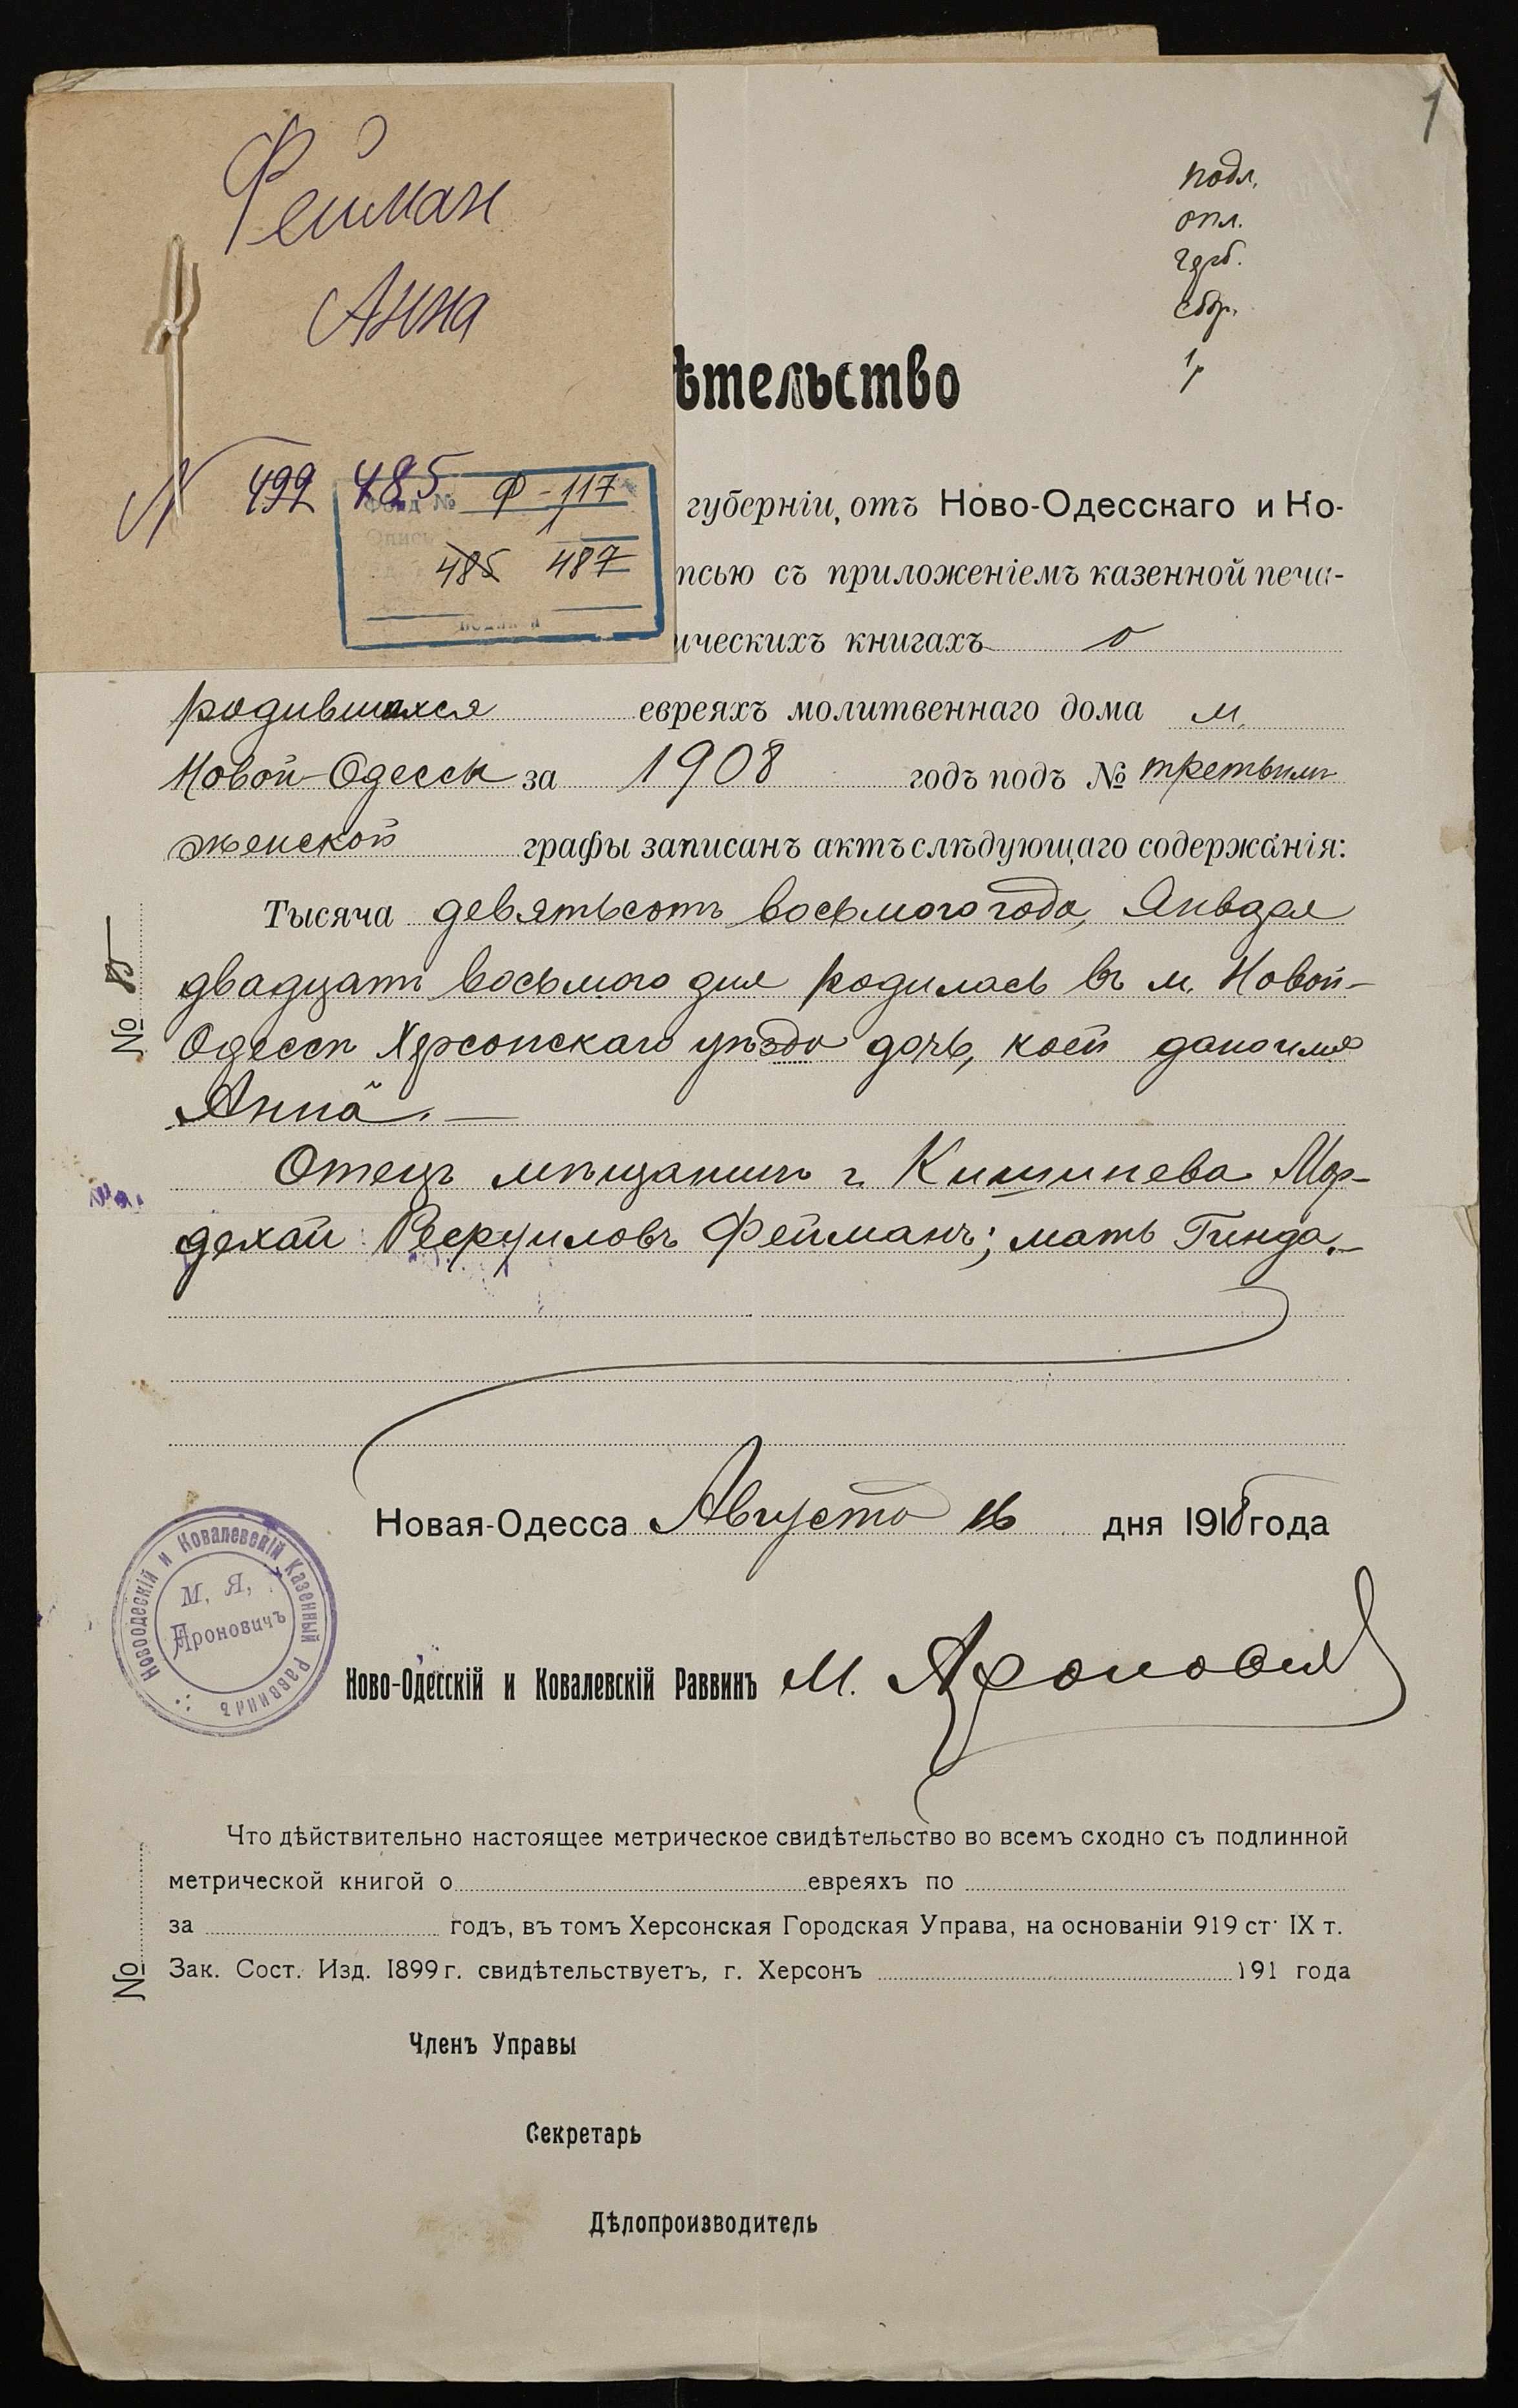 1
Фейман
Анна
N 499 485
Фонд № Ф-117
Опись
485 487
подл.
опл.
герб.
сбор.
1р
ѣтельство
губерніи, отъ Ново-Одесскаго и Ко-
псью съ приложеніемъ казенной печа-
ическихъ книгахъ о
родившихся евреяхъ молитвеннаго дома м.
Новой-Одессѣ за 1908 годъ подъ № третьимъ
женской графы записанъ актъ слѣдующаго содержанія:
Тысяча девятьсотъ восьмого года, Января
двадцать восьмого дня родилась въ м. Новой-
Одессѣ Херсонскаго уѣзда дочь, коей дано имя
Анна. —
Отецъ мѣщанинъ г. Кишинева Мор-
дехай Фейманъ; мать Гинда. —
№ 5
Новая-Одесса Августа 16 дня 1918 года
Новоодескій и Ковалевскій Казенный Раввинъ
М. Я.
Ароновичъ
Ново-Одесскій и Ковалевскій Раввинъ М. Ароновичъ
Что дѣйствительно настоящее метрическое свидѣтельство во всемъ сходно съ подлинной
метрической книгой о евреяхъ по
за годъ, въ томъ Херсонская Городская Управа, на основаніи 919 ст. IX т.
Зак. Сост. Изд. 1899 г. свидѣтельствуетъ, г. Херсонъ 191 года
№
Членъ Управы
Секретарь
Дѣлопроизводитель